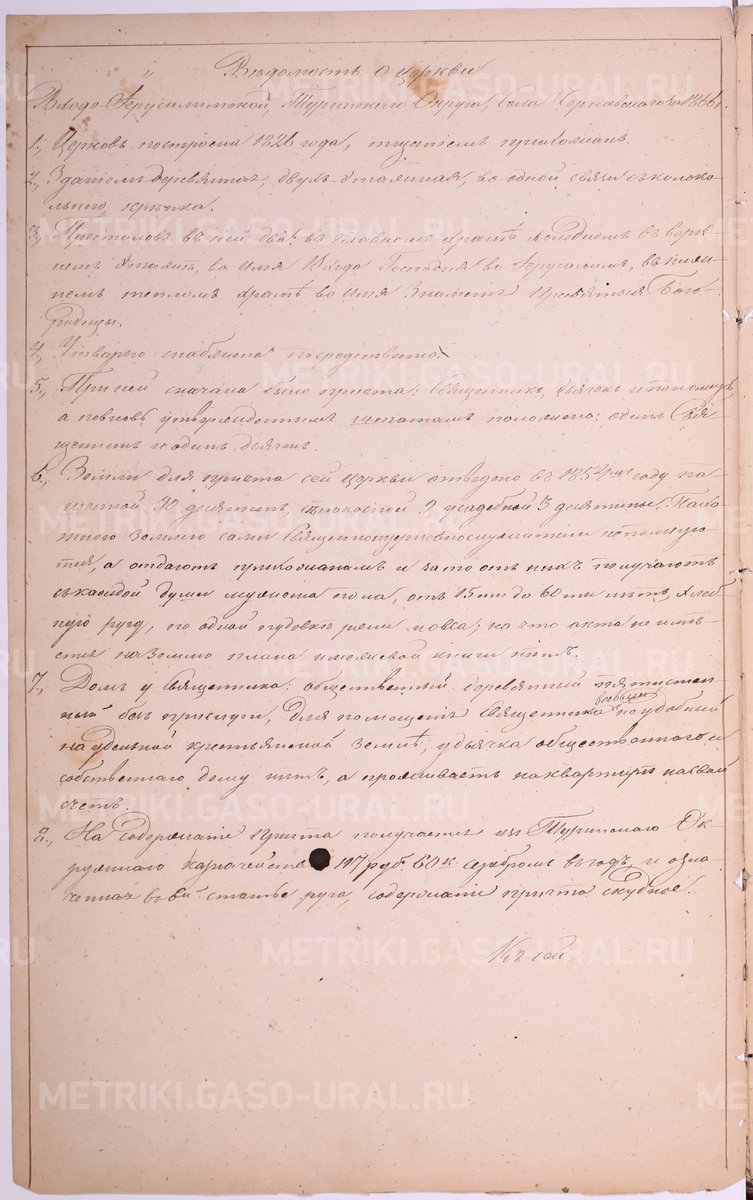 Вѣдомость о церкви
Входо-Іерусалимской, Туринскаго Округа, села Чернавскаго за 1866 г.
1., Церковь построена 1821 года, тщаніемъ прихожанъ.
2., Зданіемъ деревянная, двухъ-этажная, въ одной связи съ колоко-
льнею, крѣпка.
3., Престоловъ въ ней два: въ главномъ храмѣ холодномъ въ верх-
немъ этажѣ, во имя Входа Господня во Іерусалимъ, въ ниж-
немъ тепломъ храмѣ во имя Знаменія Пресвятыя Бого-
родицы.
4., Утварью снабжена посредственно.
5., При ней сначала было причта: Священникъ, дьячекъ и пономарь,
а по вновь утвержденнымъ штатамъ положено: одинъ Свя-
щенникъ и одинъ дьячекъ.
6., Земли для причта сей церкви отведено въ 1854мъ году па-
хатной 90 десятинъ, сѣнокосной 9 усадебной 3 десятины. Пахо-
тною землею сами Священноцерковнослужители не пользую
тся, а отдаютъ прихожанамъ и за то отъ нихъ получаютъ
съ каждой души мужеска пола, отъ 15ти до 60ти лѣтъ, хлѣб
ную ругу, по одной пудовкѣ ржи и овса; на что акта не имѣ-
ется на землю плана и межевой книги нѣтъ.
7., Домъ у Священника: общественный деревянный пятистен-
ный безъ прислуги, для помѣщенія Священника вовсе неудобный
на удѣльной крестьянской землѣ, у дьячка общественнаго и
собственнаго дому нѣтъ, а проживаетъ на квартирѣ на свой
счетъ.
8., На содержаніе причта получается изъ Туринскаго Ок-
ружнаго казначейства 117 руб. 60 к. серебромъ въ годъ, и озна-
ченная въ 6й статьѣ руга, содержаніе причта скудное.
Къ сей
METRIKI.GASO-URAL.RU